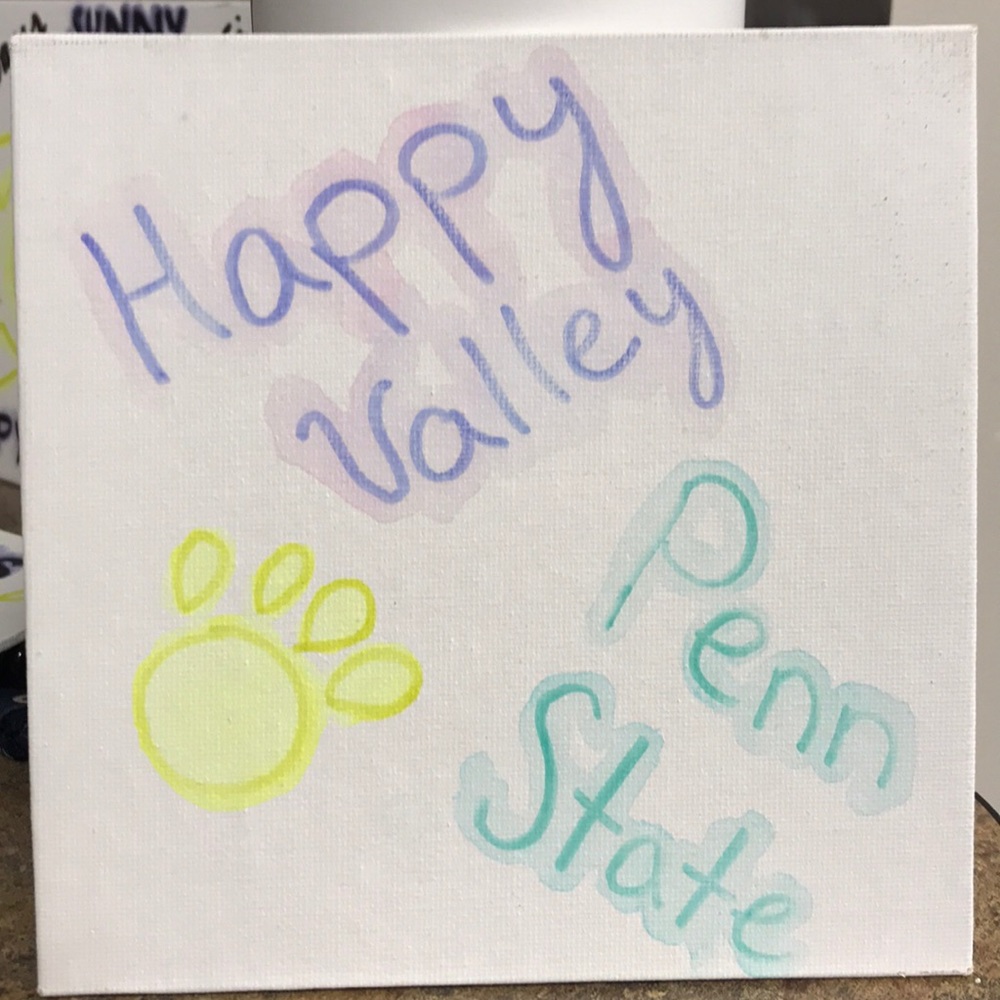 SUNNY
Happy
Valley
Penn
State